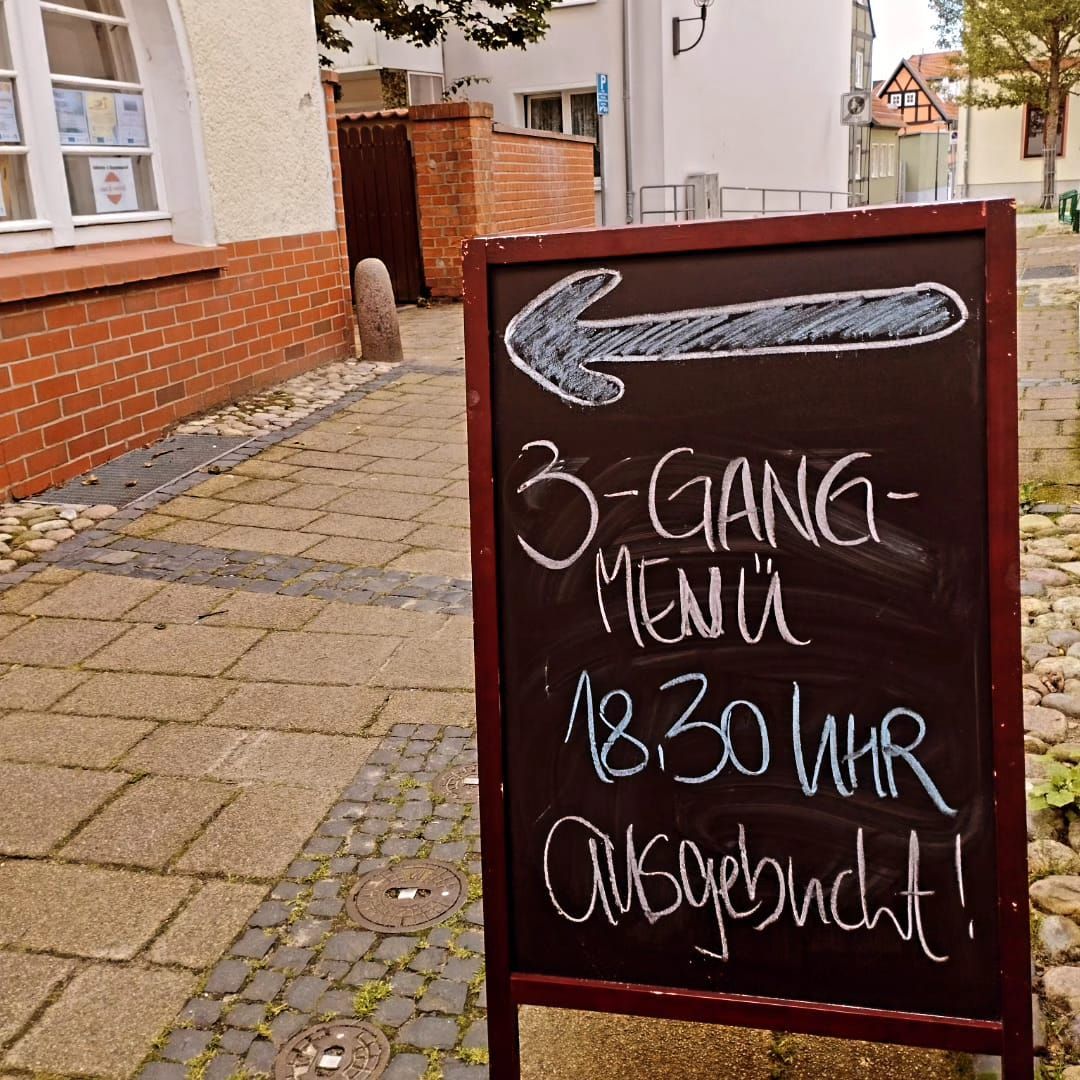 3-GANG-
MENÜ
18.30 UHR
ausgebucht!
P